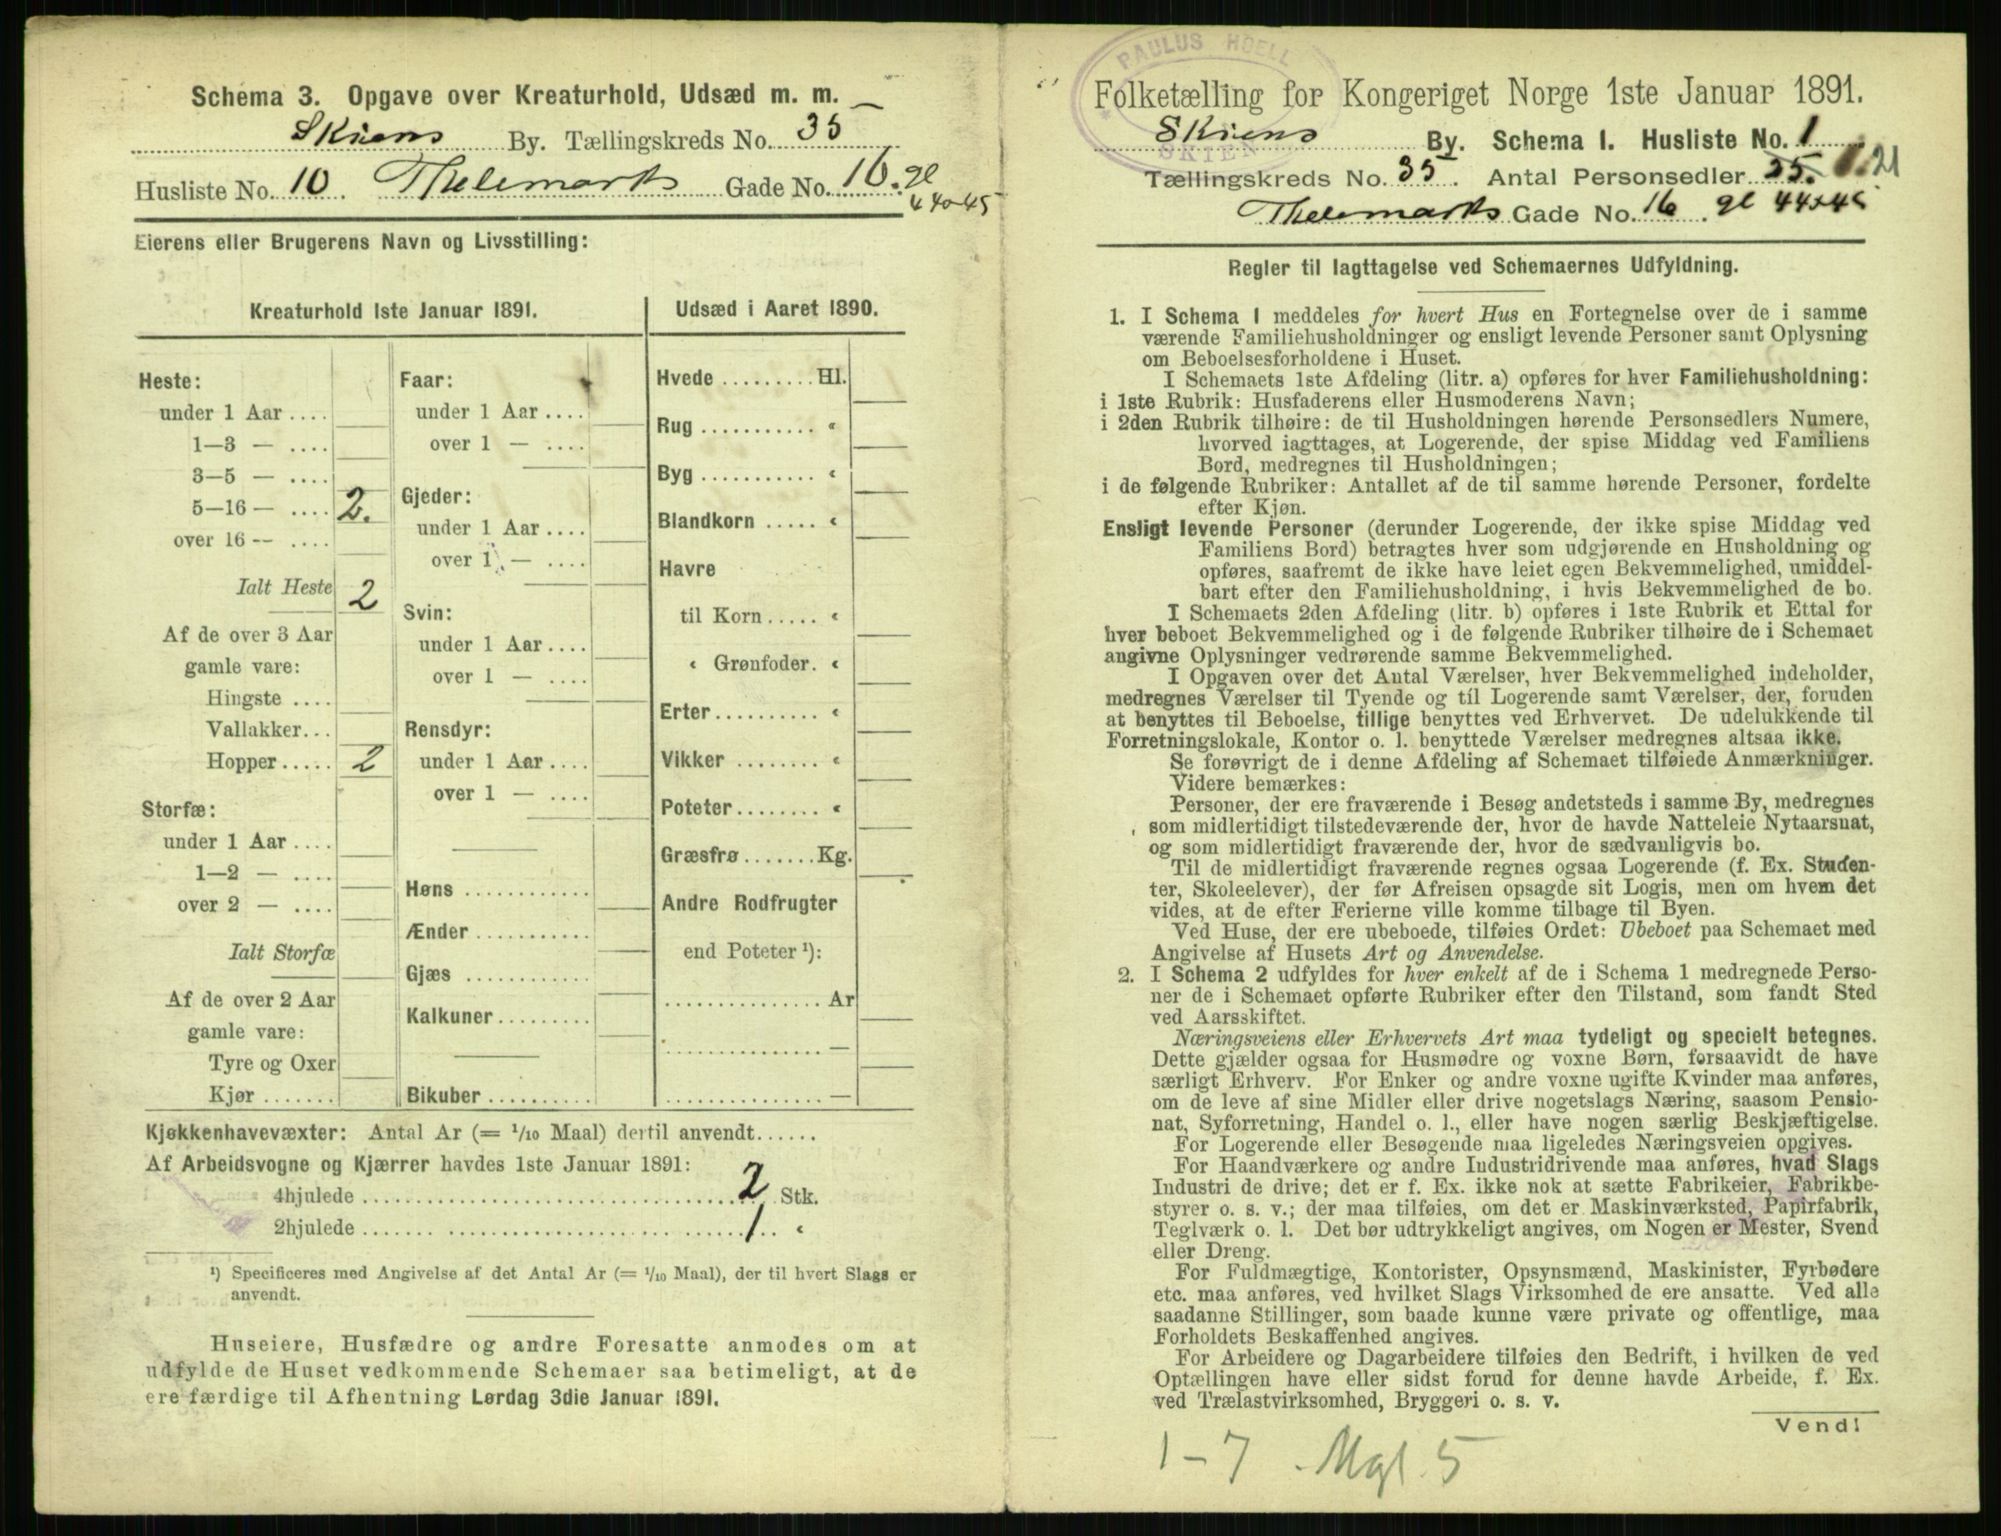 Schema 3. Opgave over Kreaturhold, Udsæd m. m.
Skiens By. Tællingskreds No. 35
Husliste No. 10. Thelemarks Gade No. 16. gl
44+45
Eierens eller Brugerens Navn og Livsstilling:
Kreaturhold 1ste Januar 1891.
Heste:
under 1 Aar ....
1—3 — ....
3—5 — ....
5—16 — .... 2.
over 16 -- ....
Ialt Heste 2
Af de over 3 Aar
gamle vare:
Hingste ....
Vallakker...
Hopper ..... 2
Storfæ:
under 1 Aar ....
1—2 — ....
over 2 — ....
Ialt Storfæ
Af de over 2 Aar
gamle vare:
Tyre og Oxer
Kjør .......
Faar:
under 1 Aar ....
over 1 — ....
Gjeder:
under 1 Aar ....
over 1 — ....
Svin:
under 1 Aar ....
over 1 — ....
Rensdyr:
under 1 Aar ....
over 1 — ....
Høns ............
Ænder ...........
Gjæs ............
Kalkuner.........
Bikuber ..........
Udsæd i Aaret 1890.
Hvede ......... Hl.
Rug ........... «
Byg ........... «
Blandkorn ..... «
Havre
til Korn ..... «
« Grønfoder. «
Erter.......... «
Vikker ........ «
Poteter........ «
Græsfrø ....... Kg.
Andre Rodfrugter
end Poteter ¹):
............... Ar
............... —
............... —
Kjøkkenhavevæxter: Antal Ar (= 1/10 Maal) dertil anvendt......
Af Arbeidsvogne og Kjærrer havdes 1ste Januar 1891:
4hjulede ........ 2 Stk.
2hjulede ........ 1 «
¹) Specificeres med Angivelse af det Antal Ar (= 1/10 Maal), der til hvert Slags er
anvendt.
Huseiere, Husfædre og andre Foresatte anmodes om at
udfylde de Huset vedkommende Schemaer saa betimeligt, at de
ere færdige til Afhentning Lørdag 3die Januar 1891.
PAULUS HOELL
SKIEN
Folketælling for Kongeriget Norge 1ste Januar 1891.
Skiens By. Schema I. Husliste No. 1
Tællingskreds No. 35. Antal Personsedler 25. 21
Thelemarks Gade No. 16. gl 44+45
Regler til Iagttagelse ved Schemaernes Udfyldning.
1. I Schema I meddeles for hvert Hus en Fortegnelse over de i samme
værende Familiehusholdninger og ensligt levende Personer samt Oplysning
om Beboelsesforholdene i Huset.
I Schemaets 1ste Afdeling (litr. a) opføres for hver Familiehusholdning:
i 1ste Rubrik: Husfaderens eller Husmoderens Navn;
i 2den Rubrik tilhøire: de til Husholdningen hørende Personsedlers Numere,
hvorved iagttages, at Logerende, der spise Middag ved Familiens
Bord, medregnes til Husholdningen;
i de følgende Rubriker: Antallet af de til samme hørende Personer, fordelte
efter Kjøn.
Ensligt levende Personer (derunder Logerende, der ikke spise Middag ved
Familiens Bord) betragtes hver som udgjørende en Husholdning og
opføres, saafremt de ikke have leiet egen Bekvemmelighed, umiddel-
bart efter den Familiehusholdning, i hvis Bekvemmelighed de bo.
I Schemaets 2den Afdeling (litr. b) opføres i 1ste Rubrik et Ettal for
hver beboet Bekvemmelighed og i de følgende Rubriker tilhøire de i Schemaet
angivne Oplysninger vedrørende samme Bekvemmelighed.
I Opgaven over det Antal Værelser, hver Bekvemmelighed indeholder,
medregnes Værelser til Tyende og til Logerende samt Værelser, der, foruden
at benyttes til Beboelse, tillige benyttes ved Erhvervet. De udelukkende til
Forretningslokale, Kontor o. l. benyttede Værelser medregnes altsaa ikke.
Se forøvrigt de i denne Afdeling af Schemaet tilføiede Anmærkninger.
Videre bemærkes:
Personer, der ere fraværende i Besøg andetsteds i samme By, medregnes
som midlertidigt tilstedeværende der, hvor de havde Natteleie Nytaarsnat,
og som midlertidigt fraværende der, hvor de sædvanligvis bo.
Til de midlertidigt fraværende regnes ogsaa Logerende (f. Ex. Studen-
ter, Skoleelever), der før Afreisen opsagde sit Logis, men om hvem det
vides, at de efter Ferierne ville komme tilbage til Byen.
Ved Huse, der ere ubeboede, tilføies Ordet: Ubeboet paa Schemaet med
Angivelse af Husets Art og Anvendelse.
2. I Schema 2 udfyldes for hver enkelt af de i Schema 1 medregnede Perso-
ner de i Schemaet opførte Rubriker efter den Tilstand, som fandt Sted
ved Aarsskiftet.
Næringsveiens eller Erhvervets Art maa tydeligt og specielt betegnes.
Dette gjælder ogsaa for Husmødre og voxne Børn, forsaavidt de have
særligt Erhverv. For Enker og andre voxne ugifte Kvinder maa anføres,
om de leve af sine Midler eller drive nogetslags Næring, saasom Pensio-
nat, Syforretning, Handel o. l., eller have nogen særlig Beskjæftigelse.
For Logerende eller Besøgende maa ligeledes Næringsveien opgives.
For Haandværkere og andre Industridrivende maa anføres, hvad Slags
Industri de drive; det er f. Ex. ikke nok at sætte Fabrikeier, Fabrikbe-
styrer o. s. v.; der maa tilføies, om det er Maskinværksted, Papirfabrik,
Teglværk o. l. Det bør udtrykkeligt angives, om Nogen er Mester, Svend
eller Dreng.
For Fuldmægtige, Kontorister, Opsynsmænd, Maskinister, Fyrbødere
etc. maa anføres, ved hvilket Slags Virksomhed de ere ansatte. Ved alle
saadanne Stillinger, som baade kunne være private og offentlige, maa
Forholdets Beskaffenhed angives.
For Arbeidere og Dagarbeidere tilføies den Bedrift, i hvilken de ved
Optællingen have eller sidst forud for denne havde Arbeide, f. Ex.
ved Trælastvirksomhed, Bryggeri o. s. v.
Vend!
1-7. Mgl. 5